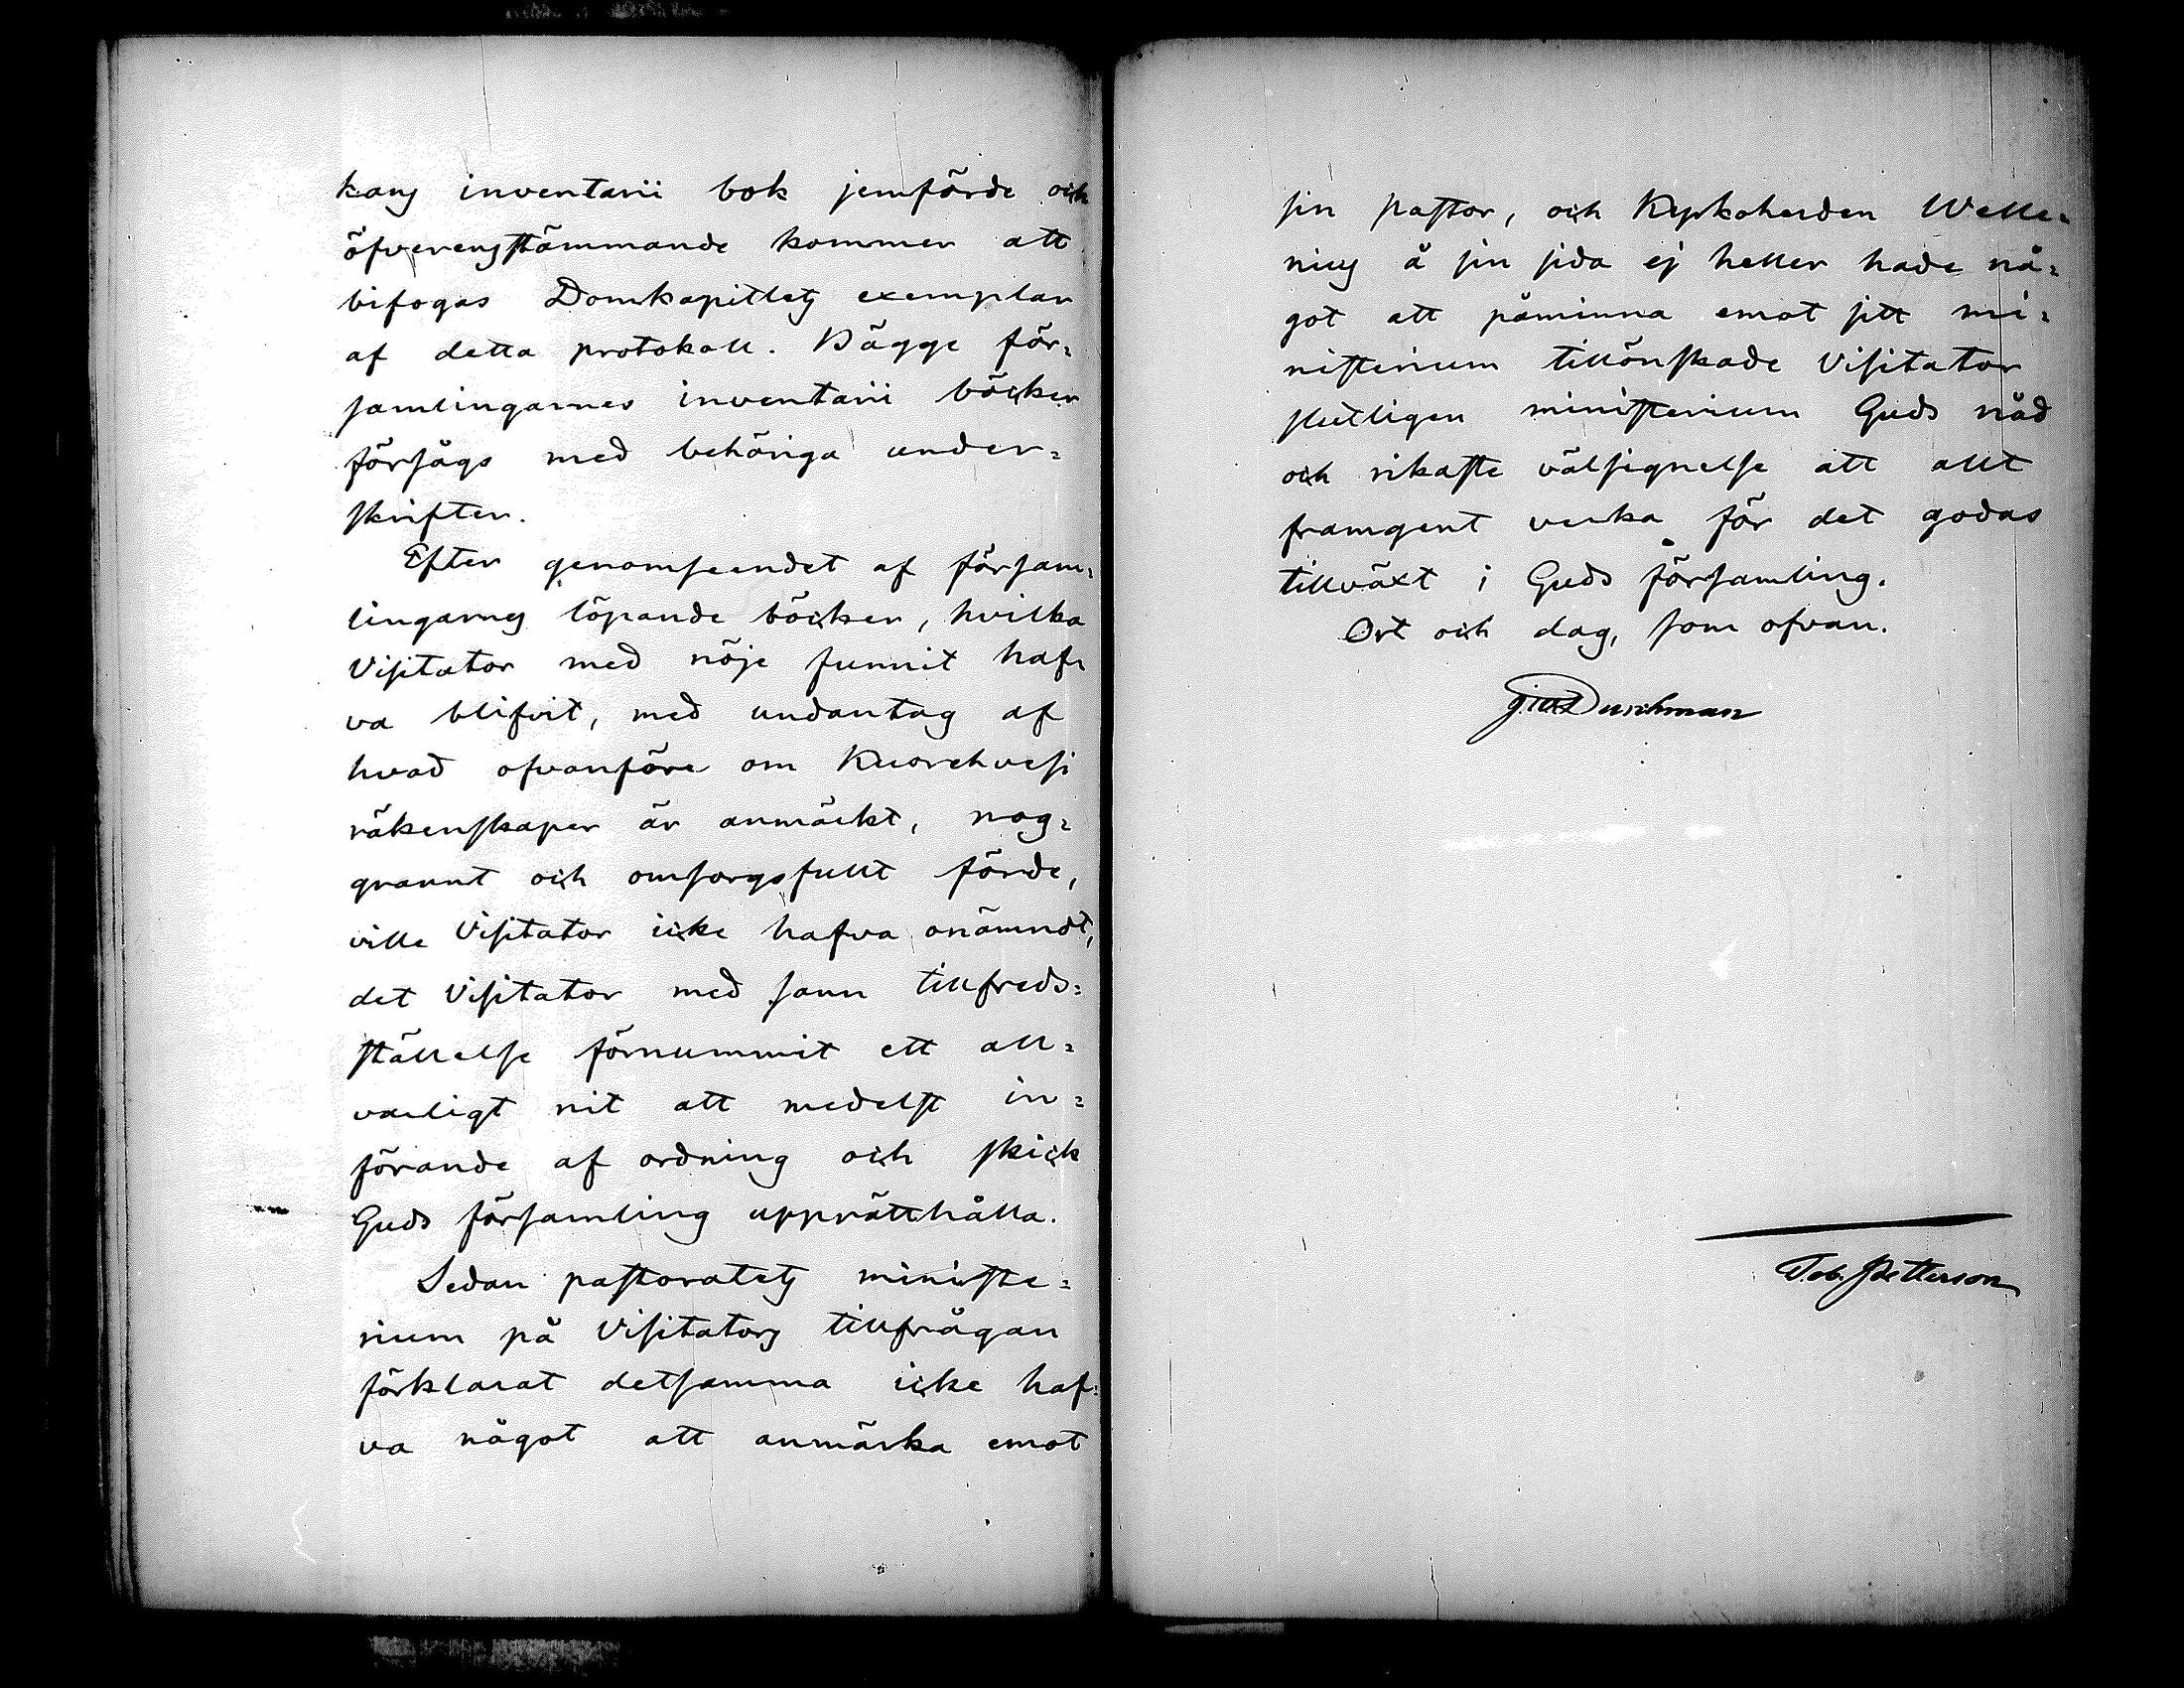 kans inventarii bok jemförde och
öfverensstämmande kommer att
bifogas Domkapitlets exemplar
af detta protokoll. Bägge för=
samlingarnes inventarii böcker
försågs med behöriga under=
skrifter.
Efter genomseendet af försam=
lingarnes löpande böcker, hvilka
Visitator med nöje funnit haf=
va blifvit, med undantag af
hvad ofvanföre om Kuorehvesi
räkenskaper är anmärkt, nog=
grannt och omsorgsfullt förde,
ville Visitator icke hafva onämndt,
det Visitator med sann tillfreds=
ställelse förnummit ett all=
varligt nit att medelst in=
förande af ordning och skick
Guds församling upprätthålla.
Sedan pastoratets ministe=
rium på Visitators tillfrågan
förklarat detsamma icke haf=
va något att anmärka emot
sin pastor, och Kyrkoherden Welle=
nius å sin sida ej heller hade nå=
got att påminna emot sitt mi=
nisterium tillönskade Visitator
slutligen ministerium Guds nåd
och rikaste välsignelse att allt
framgent verka för det godas
tillväxt i Guds församling.
Ort och dag, som ofvan.
Durchman
Tob. Petterson